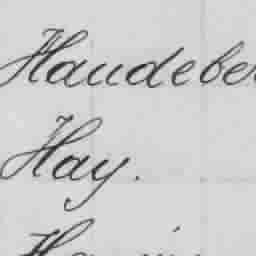 Haudeber
Hay.